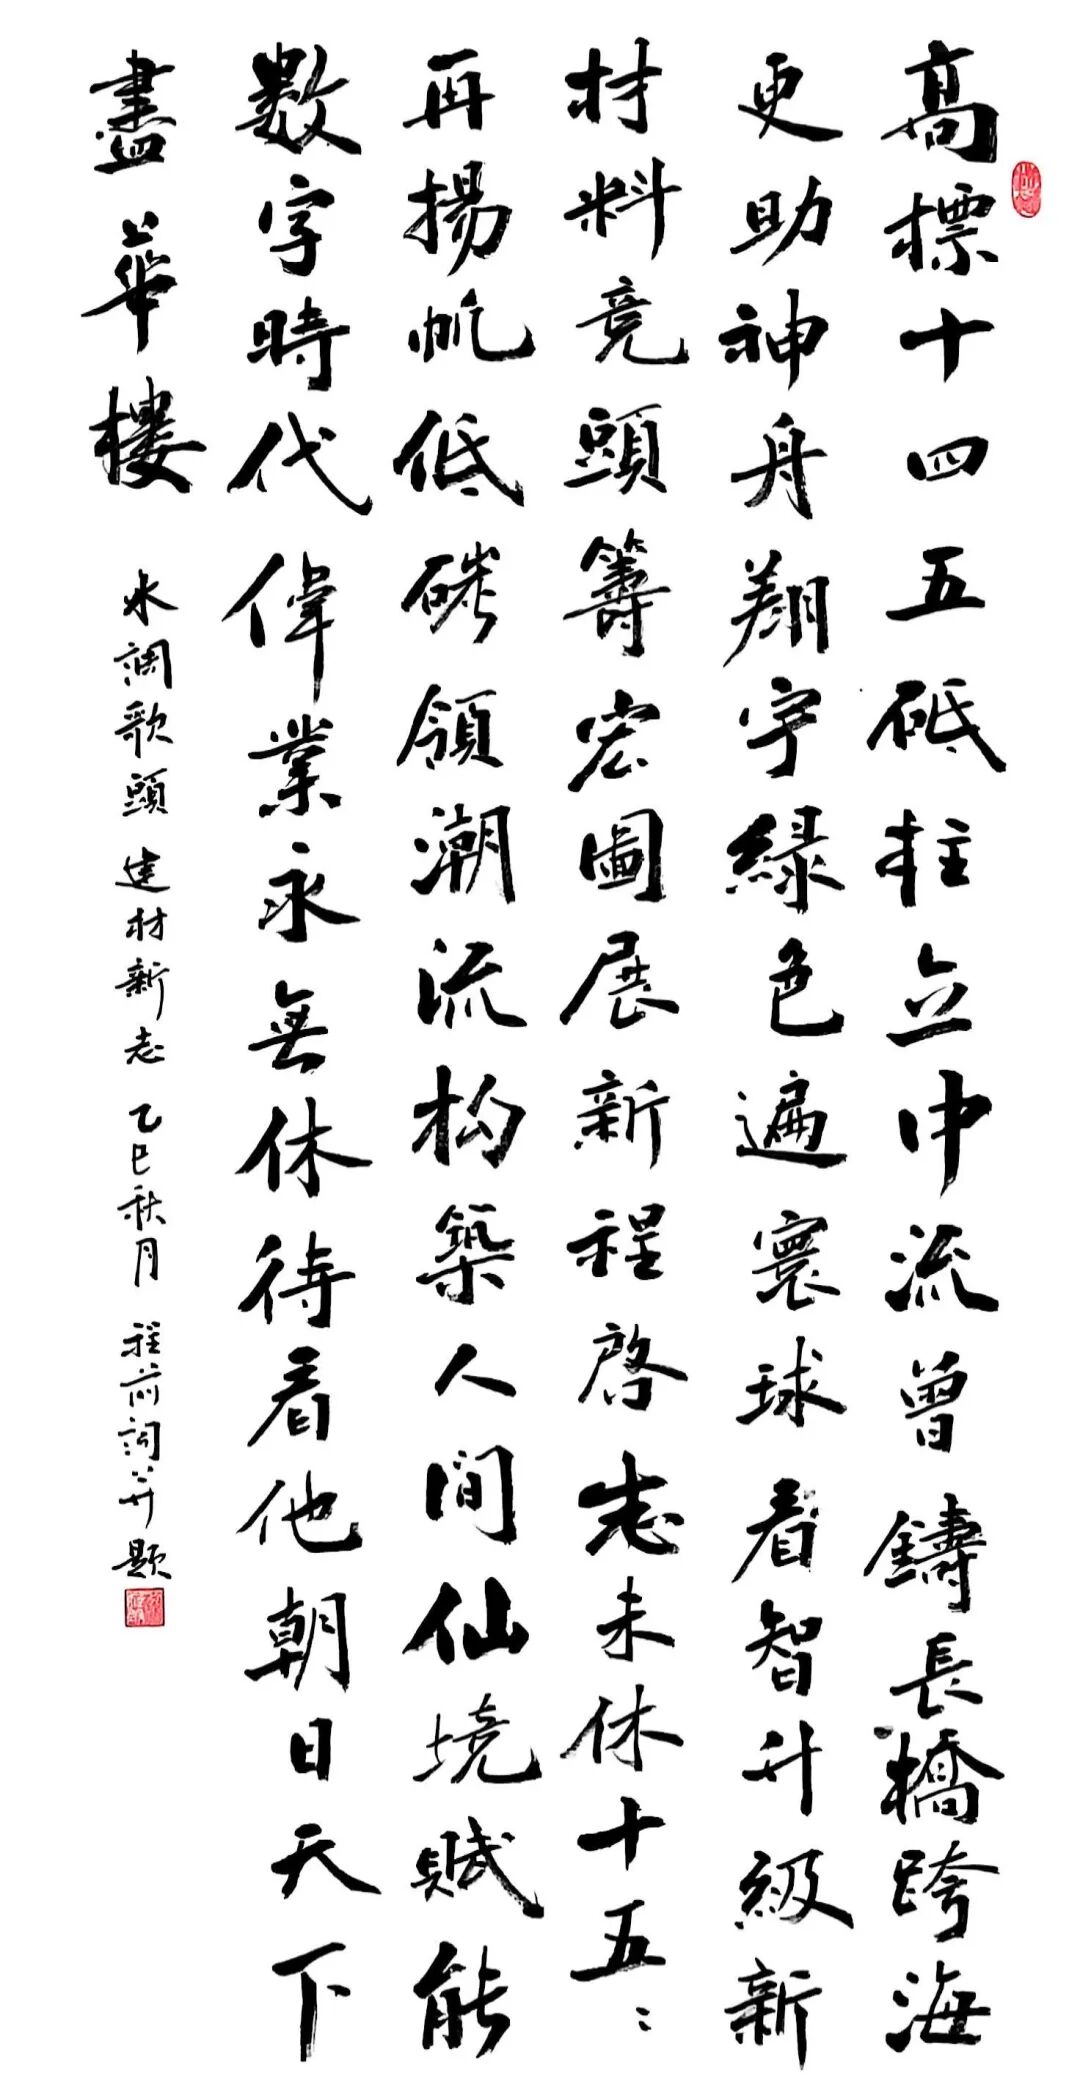 高標十四五砥柱立中流曾鑄長橋跨海
更助神舟翔宇綠色遍寰球看智升級新
材料竞頭籌宏圖展新程啓志未休十五〻
再揚帆低碳領潮流构築人間仙境賦能
數字時代偉業永無休待看他朝日天下
盡華樓
水調歌頭 建材新志 乙巳秋月 程前詞并題